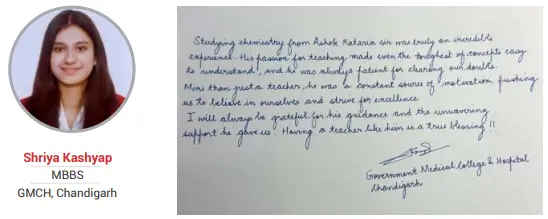 Shriya Kashyap
MBBS
GMCH, Chandigarh
Studying chemistry from Ashok Kataria sir was truly an incredible
experience. His passion for teaching made even the toughest of concepts easy
to understand, and he was always patient for clearing our doubts.
More than just a teacher, he was a constant source of motivation, pushing
us to believe in ourselves and strive for excellence.
I will always be grateful for his guidance and the unwavering
support he gave us. Having a teacher like him is a true blessing !!
Government Medical College & Hospital
Chandigarh